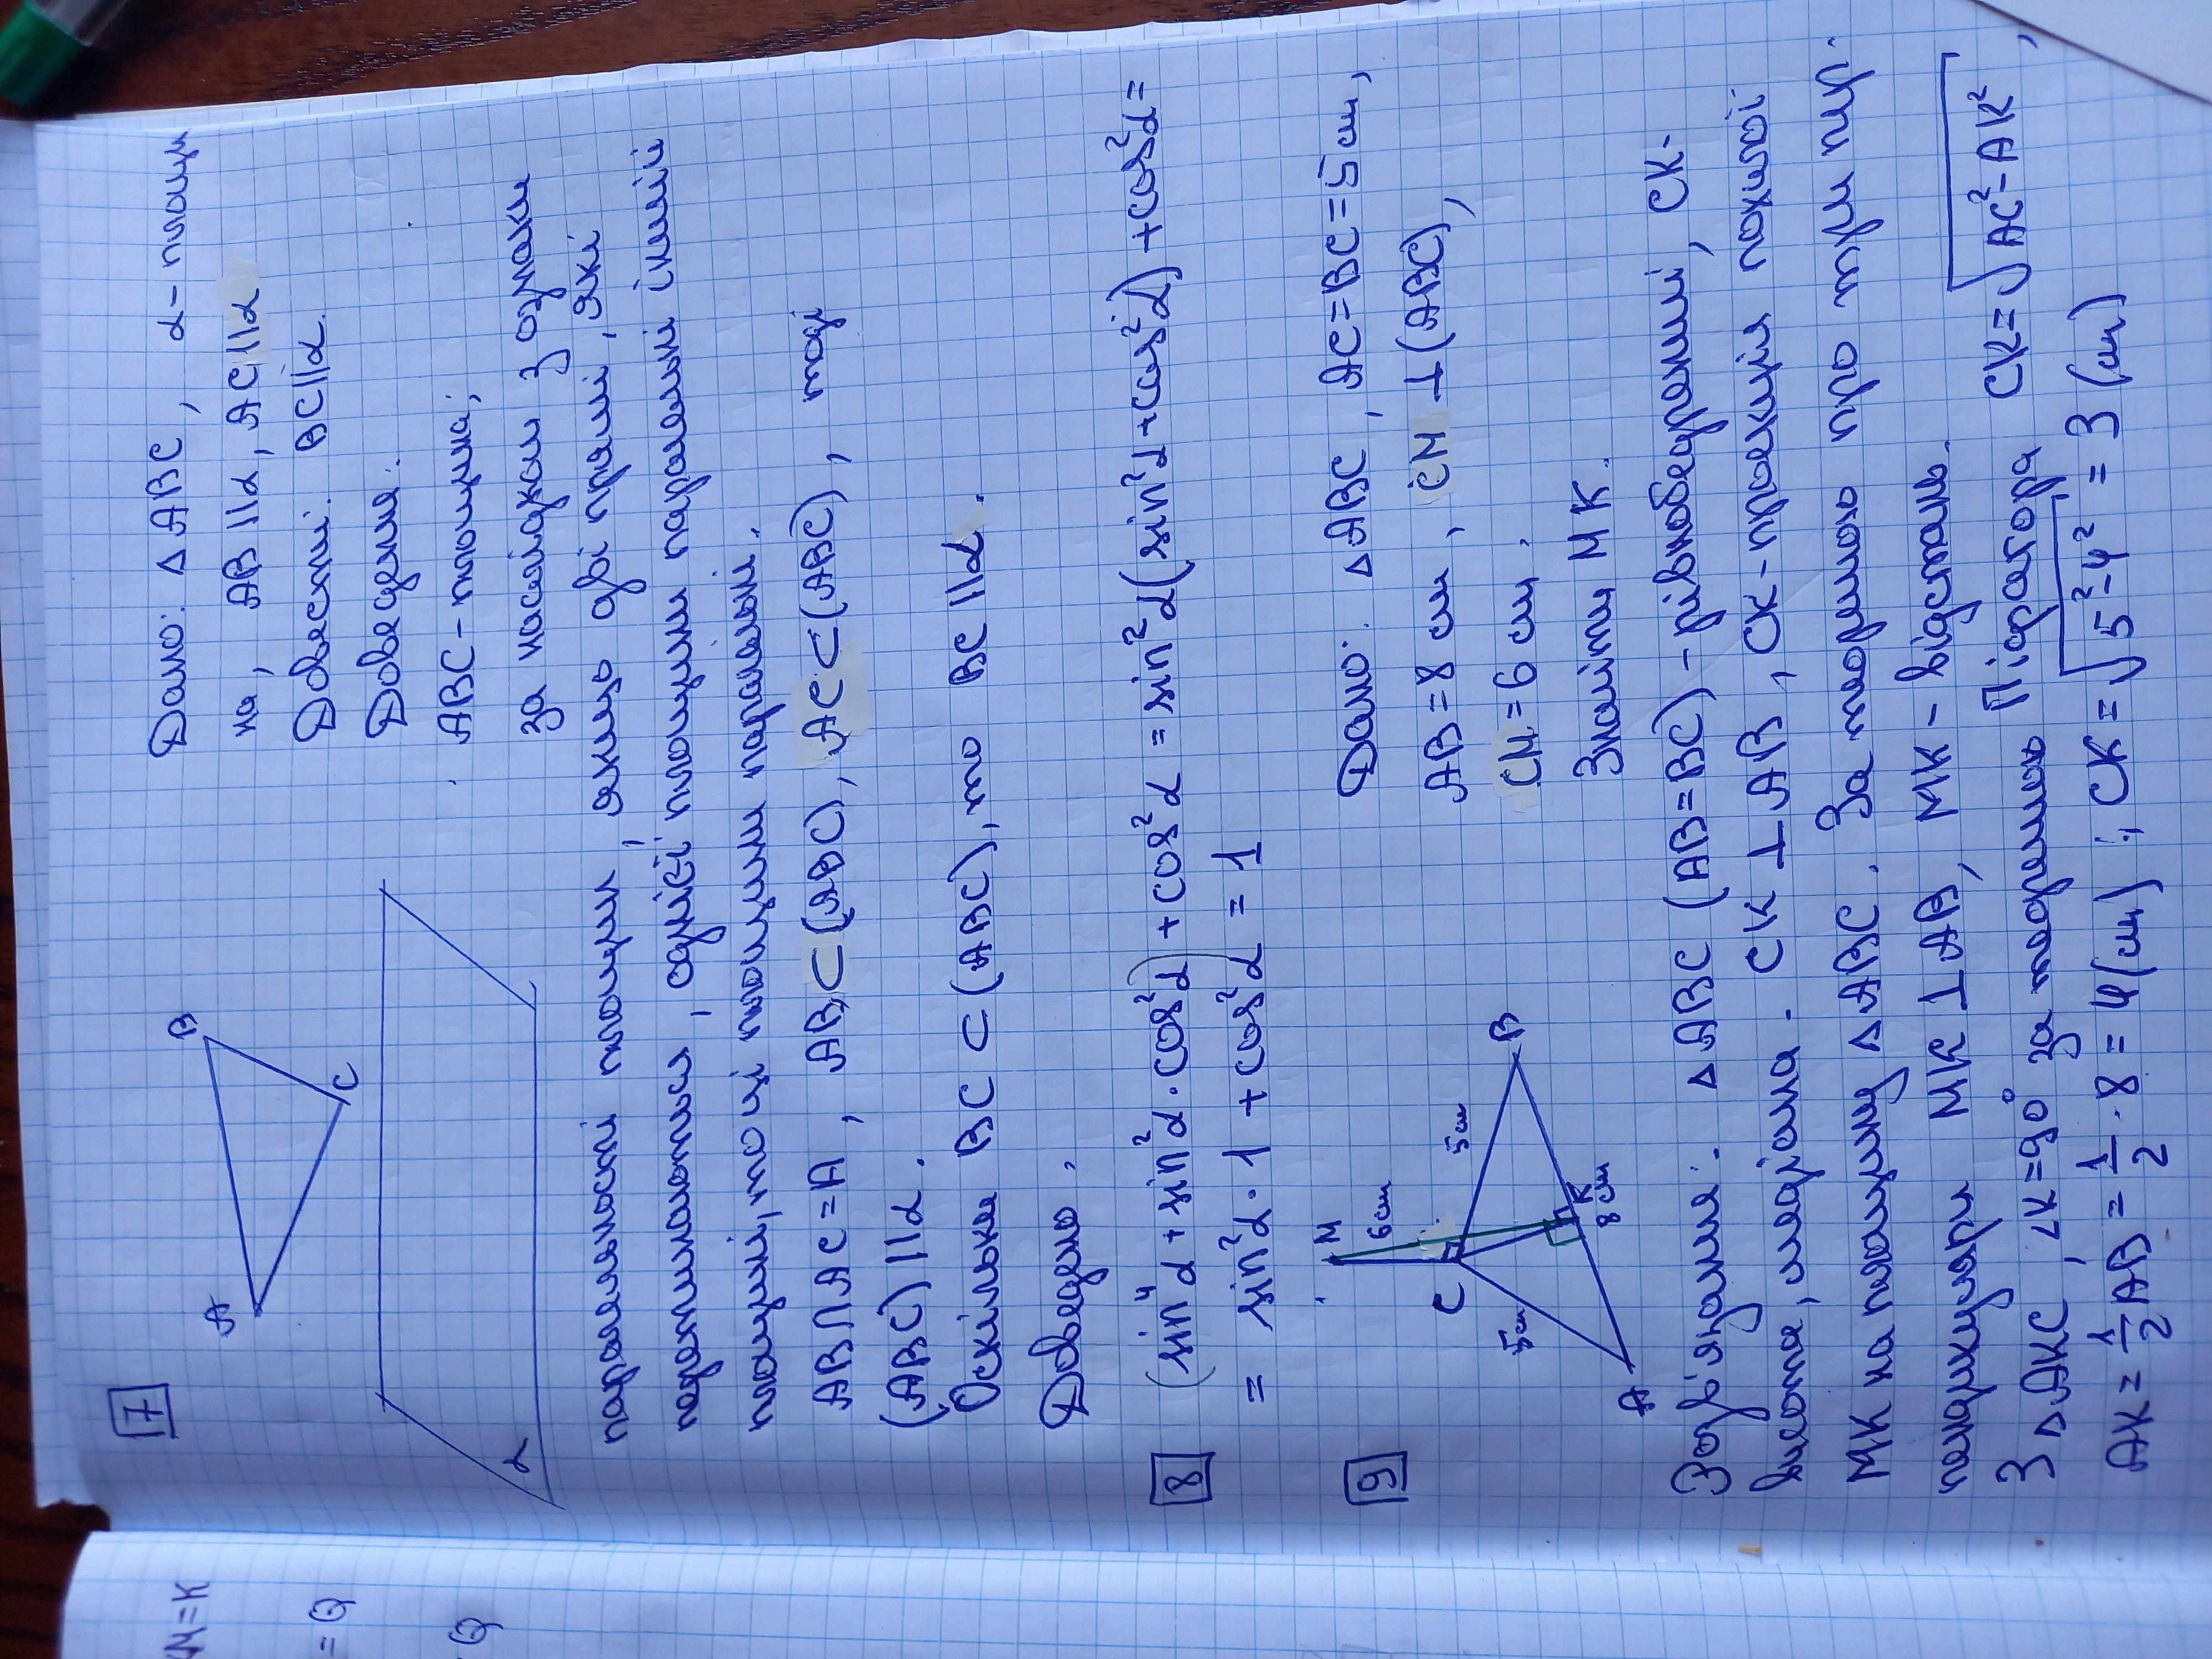 7
Дано: △ABC, α- площи
на, AB||α, AC||α
Довести: BC||α.
Доведення:
ABC-площина;
за наслідком з ознаки
паралельності площин, якщо дві прямі, які
перетинаються, однієї площини паралельні іншій
площині, то ці площини паралельні.
AB∩AC=A, AB⊂(ABC), AC⊂(ABC), тоді
(ABC)||α.
Оскільки BC⊂(ABC), то BC||α.
Доведено.
A
B
C
α
8
(sin⁴α+sin²α·cos²α)+cos²α=sin²α(sin²α+cos²α)+cos²α=
= sin²α·1+cos²α=1
9
Дано: △ABC, AC=BC=5см,
AB=8 см, CM⊥(ABC),
CM=6 см.
Знайти MK.
M
6см
C
5см
5см
B
K
8см
A
Розв'язання: △ABC (AB=BC)-рівнобедрений, CK-
висота, медіана. CK⊥AB, CK-проекція похилої
MK на площину △ABC. За теоремою про три пер-
пендикуляри MK⊥AB, MK-відстань.
З △AKC, ∠K=90° за теоремою Піфагора CK=√AC²-AK²,
AK=1/2AB=1/2·8=4(см); CK=√5²-4²=3(см)
M=K
=Q
Q